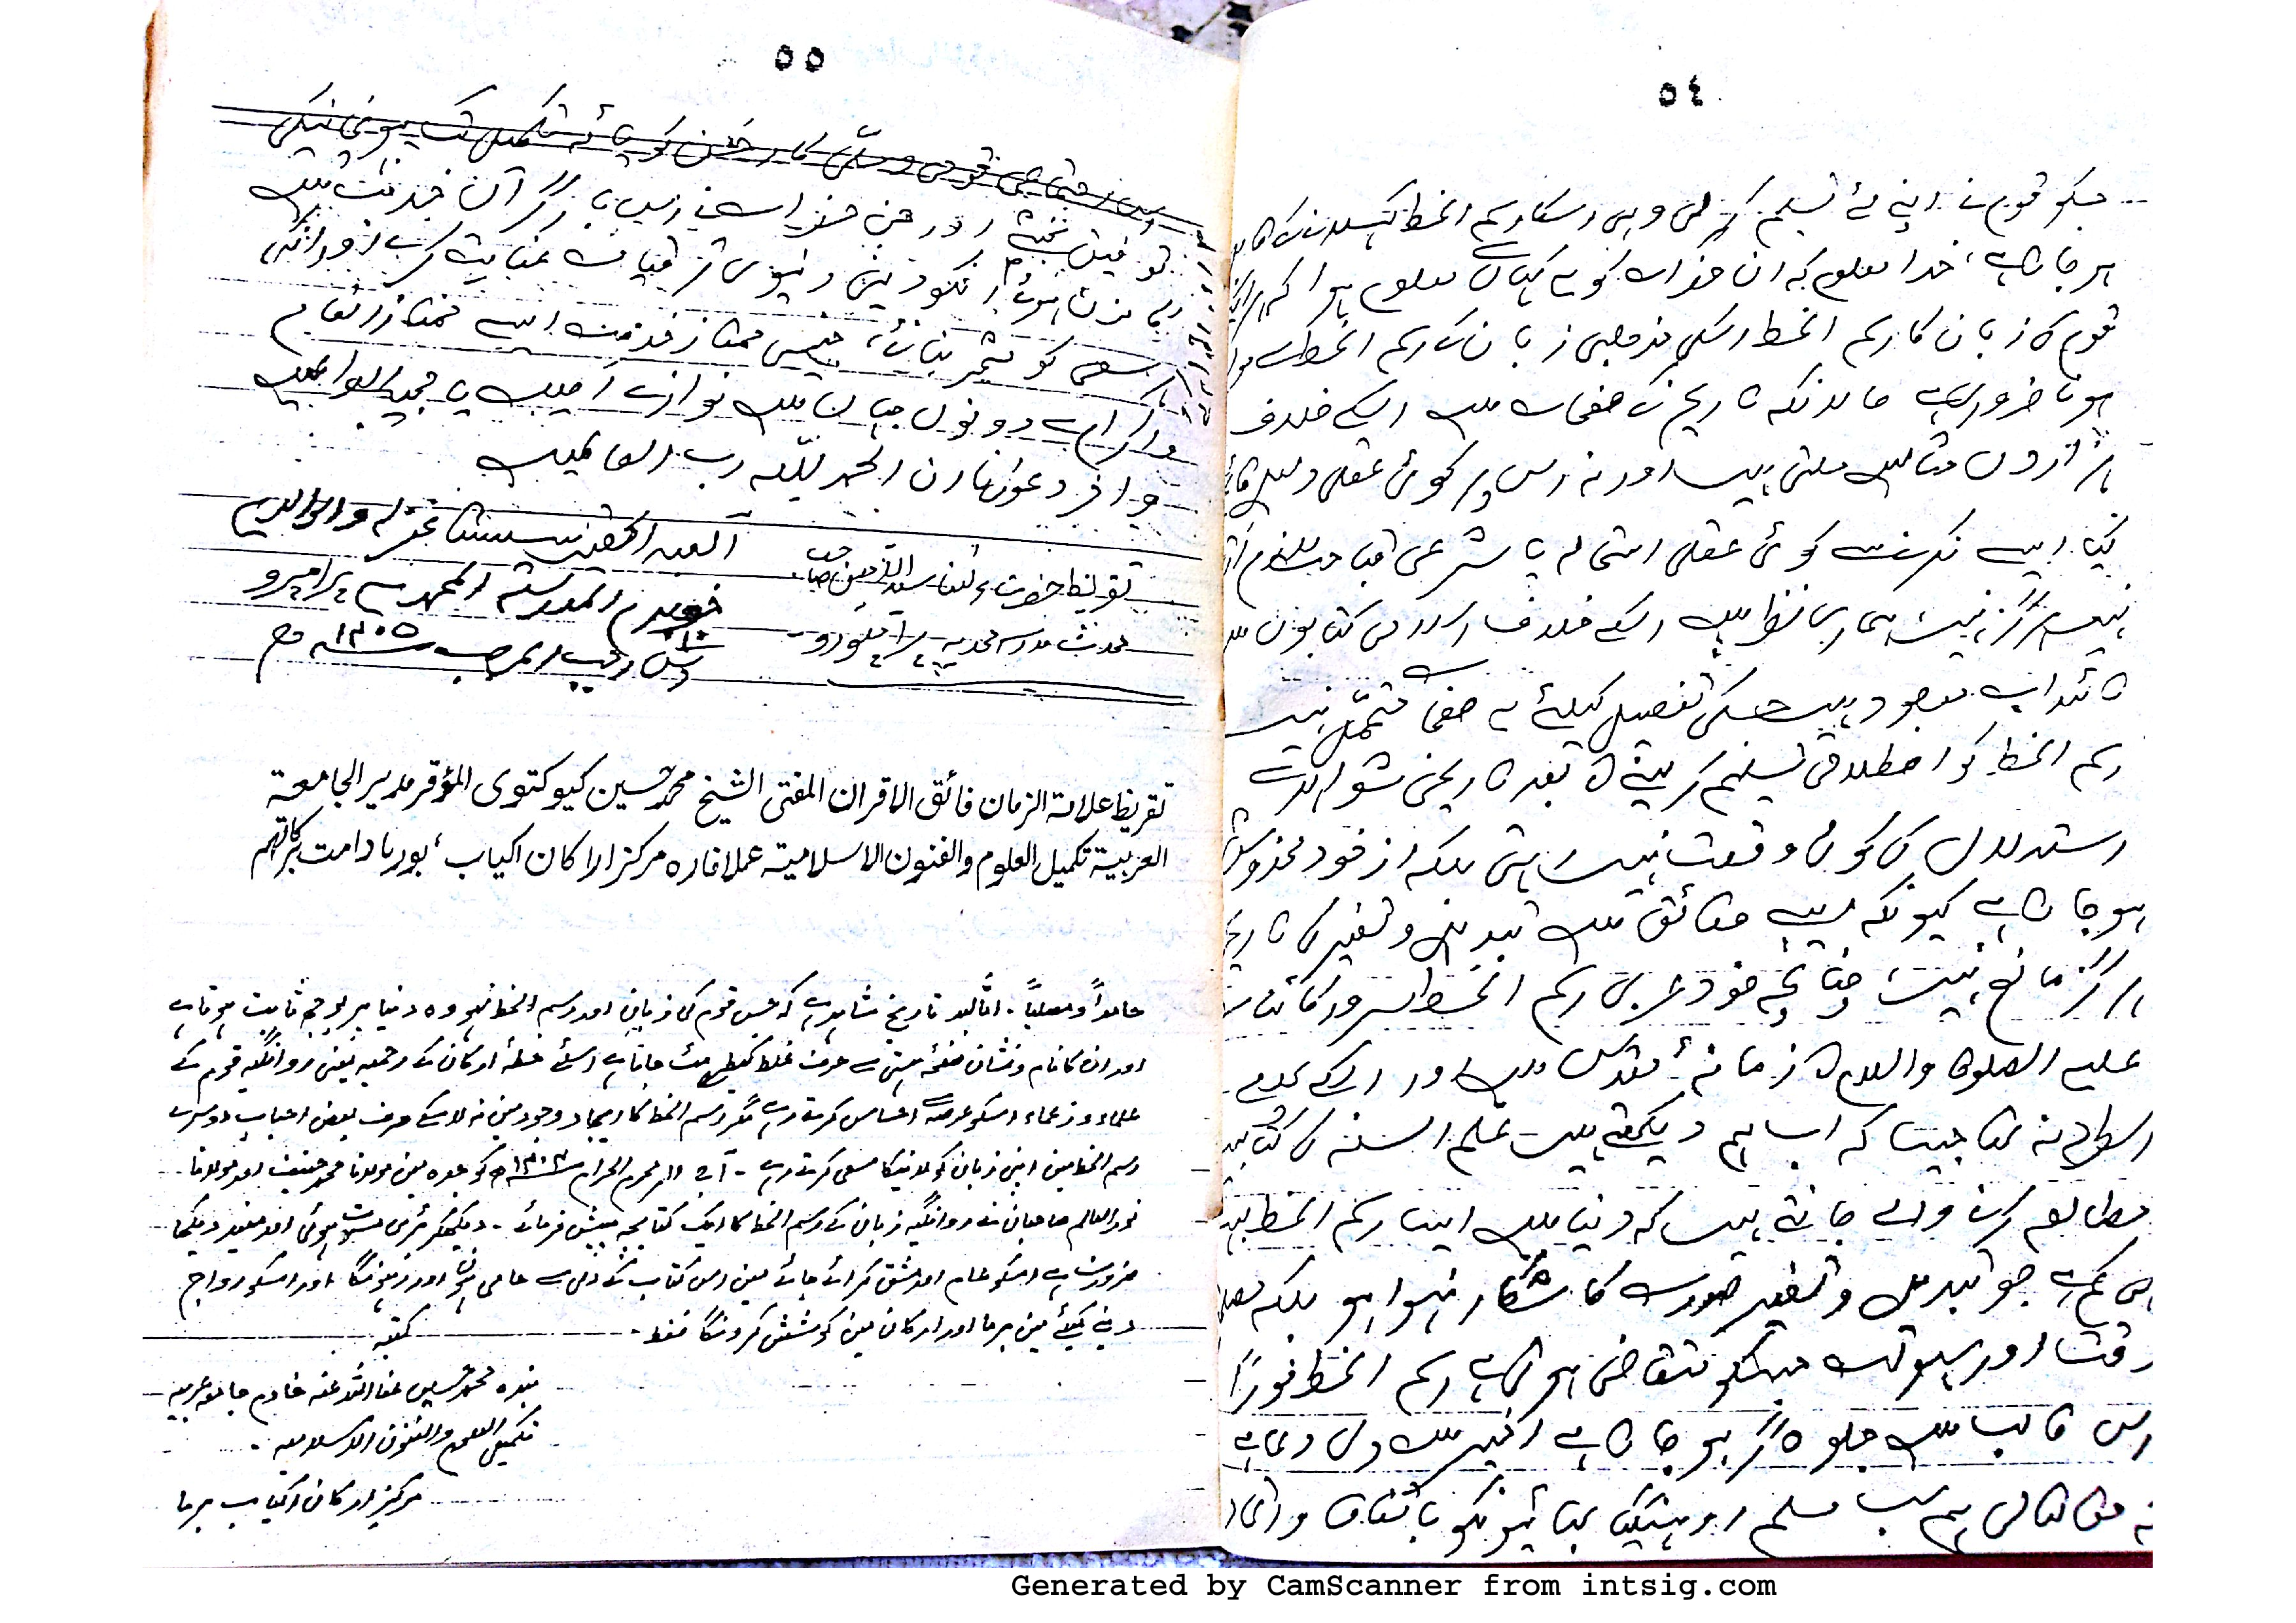 ٥٤
جسکو قوم نے اپنے لئے تسلیم کر لی وہی اسکا رسم الخط کہلانے کا
ہو جاتا ہے، خدا معلوم کہ ان حضرات کو یہ کہاں سے معلوم ہوا کہ
قوم کی زبان کا رسم الخط اسکی مذہبی زبان کے رسم الخط کے
ہونا ضروری ہے حالانکہ تاریخ کے صفحات میں اسکے خلاف
ہزاروں مثالیں ملتی ہیں اور نہ اس پر کوئی عقلی دلیل
کیا ایسے نکرنے سے کوئی عقلی استحالہ یا شرعی قباحت لازم
نہیں ہرگز نہیں ہماری نظر میں اسکے خلاف اسلامی کتابوں
تائیدات موجود ہیں جسکی تفصیل کیلئے یہ صفحات متحمل نہیں
رسم الخط کو اصطلاحی تسلیم کر لینے کے بعد تاریخی شواہد سے
استدلال کی کوئی وقعت نہیں رہتی بلکہ از خود مخدوش
ہو جاتا ہے کیونکہ ایسے حقائق میں تبدیل و تغیر کی تاریخ
ہرگز مانع نہیں، چنانچہ خود عربی رسم الخط سرور کائنات
علیہ الصلوة والسلام کے زمانۂ مقدس میں اور اسکے بعد
اسطرح نہ تھا جیسا کہ اب ہم دیکھتے ہیں علم السنہ کی کتابیں
مطالعہ کرنے والے جانتے ہیں کہ دنیا میں ایسا رسم الخط بہت
ہی کم ہے جو تبدیل و تغیر صورت کا شکار نہوا ہو بلکہ
وقت اور سہولت جسکو متقاضی ہوتی ہے رسم الخط فوراً
اس قالب میں جلوہ گر ہو جاتا ہے اخیر میں دلی دعا ہے
کہ حق تعالی ہم سب مسلم روہنگیا بھائیونکو باتفاق و اتحاد
٥٥
اس اجتماعی قومی و ملّی کار خیر کو پائہ تکمیل تک پہونچانیکی
توفیق بخشے اور جن حضرات نے اس بارگراں خدمت میں
ہاتھ بٹایا انکو دینی دنیوی ترقیات عنایت کرے اور انکی
سعی کو مثمر بنائے، جنہیں ممتاز خدمت ایسے ممتاز انعام
و اکرام سے دونوں جہاں میں نوازے آمین یا مجیب السائلین
وآخر دعوانا ان الحمد للّٰہ رب العالمین
العبد الحقیر غفرلہ ولوالدیہ
تقریظ حضرت مولانا سید الامین صاحب
خویدم المدرسہ المحمدیہ پرامپرو
محدث مدرسہ محمدیہ پرامپورو
١٠ رجب المرجب ١٤٠٥ھ
تقریظ علامة الزمان فائق الاقران المفتی الشیخ محمد حسین کیوکتوی المؤقر مدیر الجامعة
العربیة تکمیل العلوم والفنون الاسلامیة عملافاره مرکز اراکان اکیاب، بورما دامت برکاتهم
حامداً ومصلیاً۔ امّا بعد تاریخ شاہد ہے کہ جس قوم کی زبان اور رسم الخط نہو وہ دنیا پر بوجھ ثابت ہوتا ہے
اور ان کا نام و نشان صفحہ ہستی سے حرف غلط کیطرح مٹ جاتا ہے اسلئے خطہ ارکان کے یعنی روانگیہ قوم کے
علماء و زعماء اسکو عرصہ سے احساس کرتے رہے مگر رسم الخط کا ایجاد وجود میں نہ لاسکے صرف بعض احباب دوسرے
رسم الخط میں اپنی زبان کو لانیکا سعی کرتے رہے۔ آج ١١ر محرم الحرام ١٤٠٣ھ کو جدہ میں مولانا محمد حنیف اور مولانا
نور العالم صاحبان نے روانگیہ زبان کے رسم الخط کا ایک کتابچہ پیش فرمائے۔ دیکھکر بڑی مسرت ہوئی اور مفید دیکھا
ضرورت ہے اسکو عام اور مشق کرائے جائے میں اس کتاب کے دل سے حامی ہوں اور رہونگا اور اسکو رواج
دینے کیلئے میں برما اور ارکان میں کوشش کرونگا فقط۔
کتبہ
بندہ محمد حسین عفا اللہ عنہ خادم جامعہ عربیہ
تکمیل العلوم والفنون الاسلامیہ۔
مرکز ارکان اکیاب برما
Generated by CamScanner from intsig.com